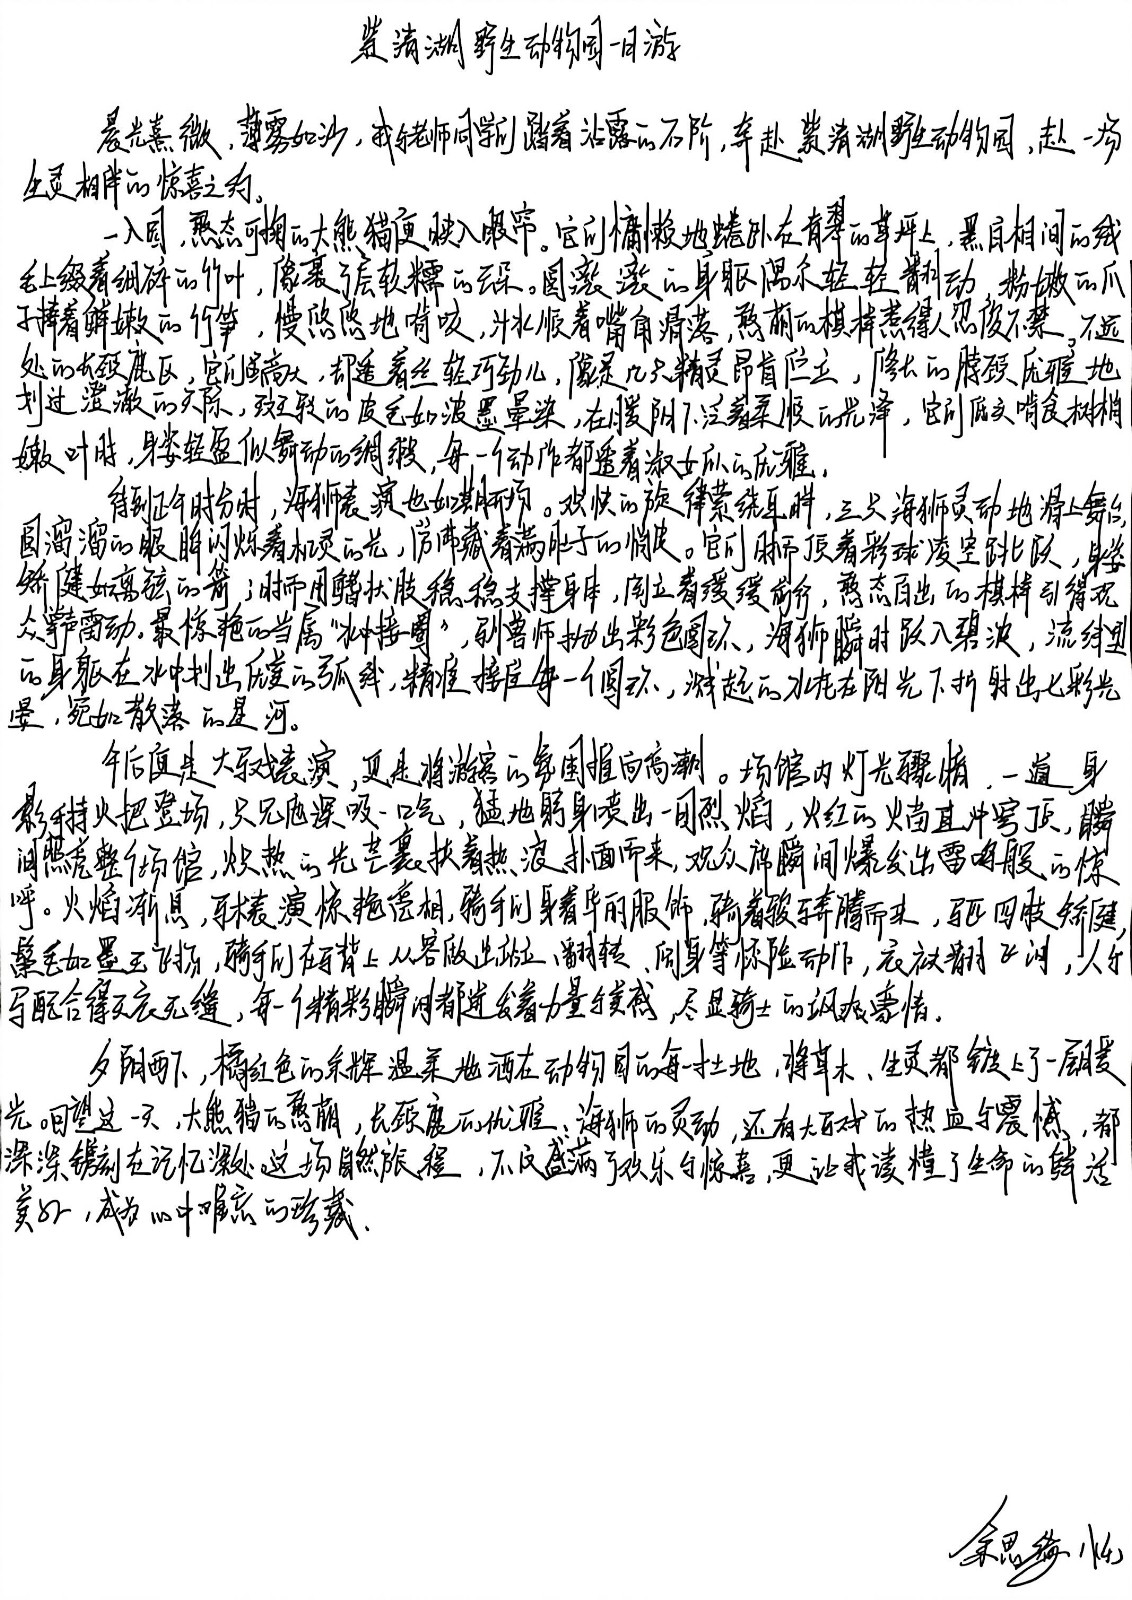 紫清湖野生动物园一日游
晨光熹微，薄雾如沙，我与老师同学们踏着沾露的石阶，奔赴紫清湖野生动物园，赴一场
生灵相伴的惊喜之约。
一入园，憨态可掬的大熊猫便映入眼帘。它们慵懒地蜷卧在青翠的草坪上，黑白相间的绒
毛上缀着细碎的竹叶，像裹了层软糯的云朵。圆滚滚的身躯偶尔轻轻翻动，粉嫩的爪
子捧着鲜嫩的竹笋，慢悠悠地啃咬，汁水顺着嘴角滑落，憨萌的模样惹得人忍俊不禁。不远
处的长颈鹿区，它们虽高大，却透着丝轻巧劲儿，像是几只精灵昂首伫立，修长的脖颈优雅地
划过澄澈的天际，斑驳的皮毛如泼墨晕染，在暖阳下泛着柔顺的光泽，它们低头啃食树梢
嫩叶时，身姿轻盈似舞动的绸缎，每一个动作都透着淑女般的优雅。
待到正午时分时，海狮表演也如期而场。欢快的旋律萦绕耳畔，三只海狮灵动地滑上舞台，
圆溜溜的眼眸闪烁着机灵的光，仿佛藏着满肚子的俏皮。它们时而顶着彩球凌空跳跃，身姿
矫健如离弦的箭；时而用鳍状肢稳稳支撑身体，倒立着缓缓前行，憨态百出的模样引得观
众掌声雷动。最惊艳的当属“水中接圈”，驯兽师抛出彩色圆环，海狮瞬时跃入碧波，流线型
的身躯在水中划出优美的弧线，精准接住每一个圆环，溅起的水花在阳光下折射出七彩光
晕，宛如散落的星河。
午后便是大马戏表演，更是将游客的氛围推向高潮。场馆内灯光骤暗，一道身
影手持火把登场，只见他深吸一口气，猛地躬身喷出一团烈焰，火红的火苗直冲穹顶，瞬
间照亮整个场馆，炽热的光芒裹挟着热浪扑面而来，观众席瞬间爆发出雷鸣般的惊
呼。火焰渐息，马术表演惊艳亮相，骑手们身着华丽服饰，骑着骏马奔腾而来，马匹四肢矫健，
鬃毛如墨玉飞扬，骑手们在马背上从容做出站立、翻转、俯身等惊险动作，衣袂翻飞间，人与
马配合得天衣无缝，每一个精彩瞬间都迸发着力量与美感，尽显骑士的飒爽豪情。
夕阳西下，橘红色的余辉温柔地洒在动物园的每一寸土地，将草木、生灵都镀上了一层暖
光。回望这一天，大熊猫的憨萌，长颈鹿的优雅，海狮的灵动，还有大马戏的热血与震憾，都
深深镌刻在记忆深处。这场自然旅程，不仅盛满了欢乐与惊喜，更让我读懂了生命的鲜活
美好，成为心中难忘的珍藏。
余思绮